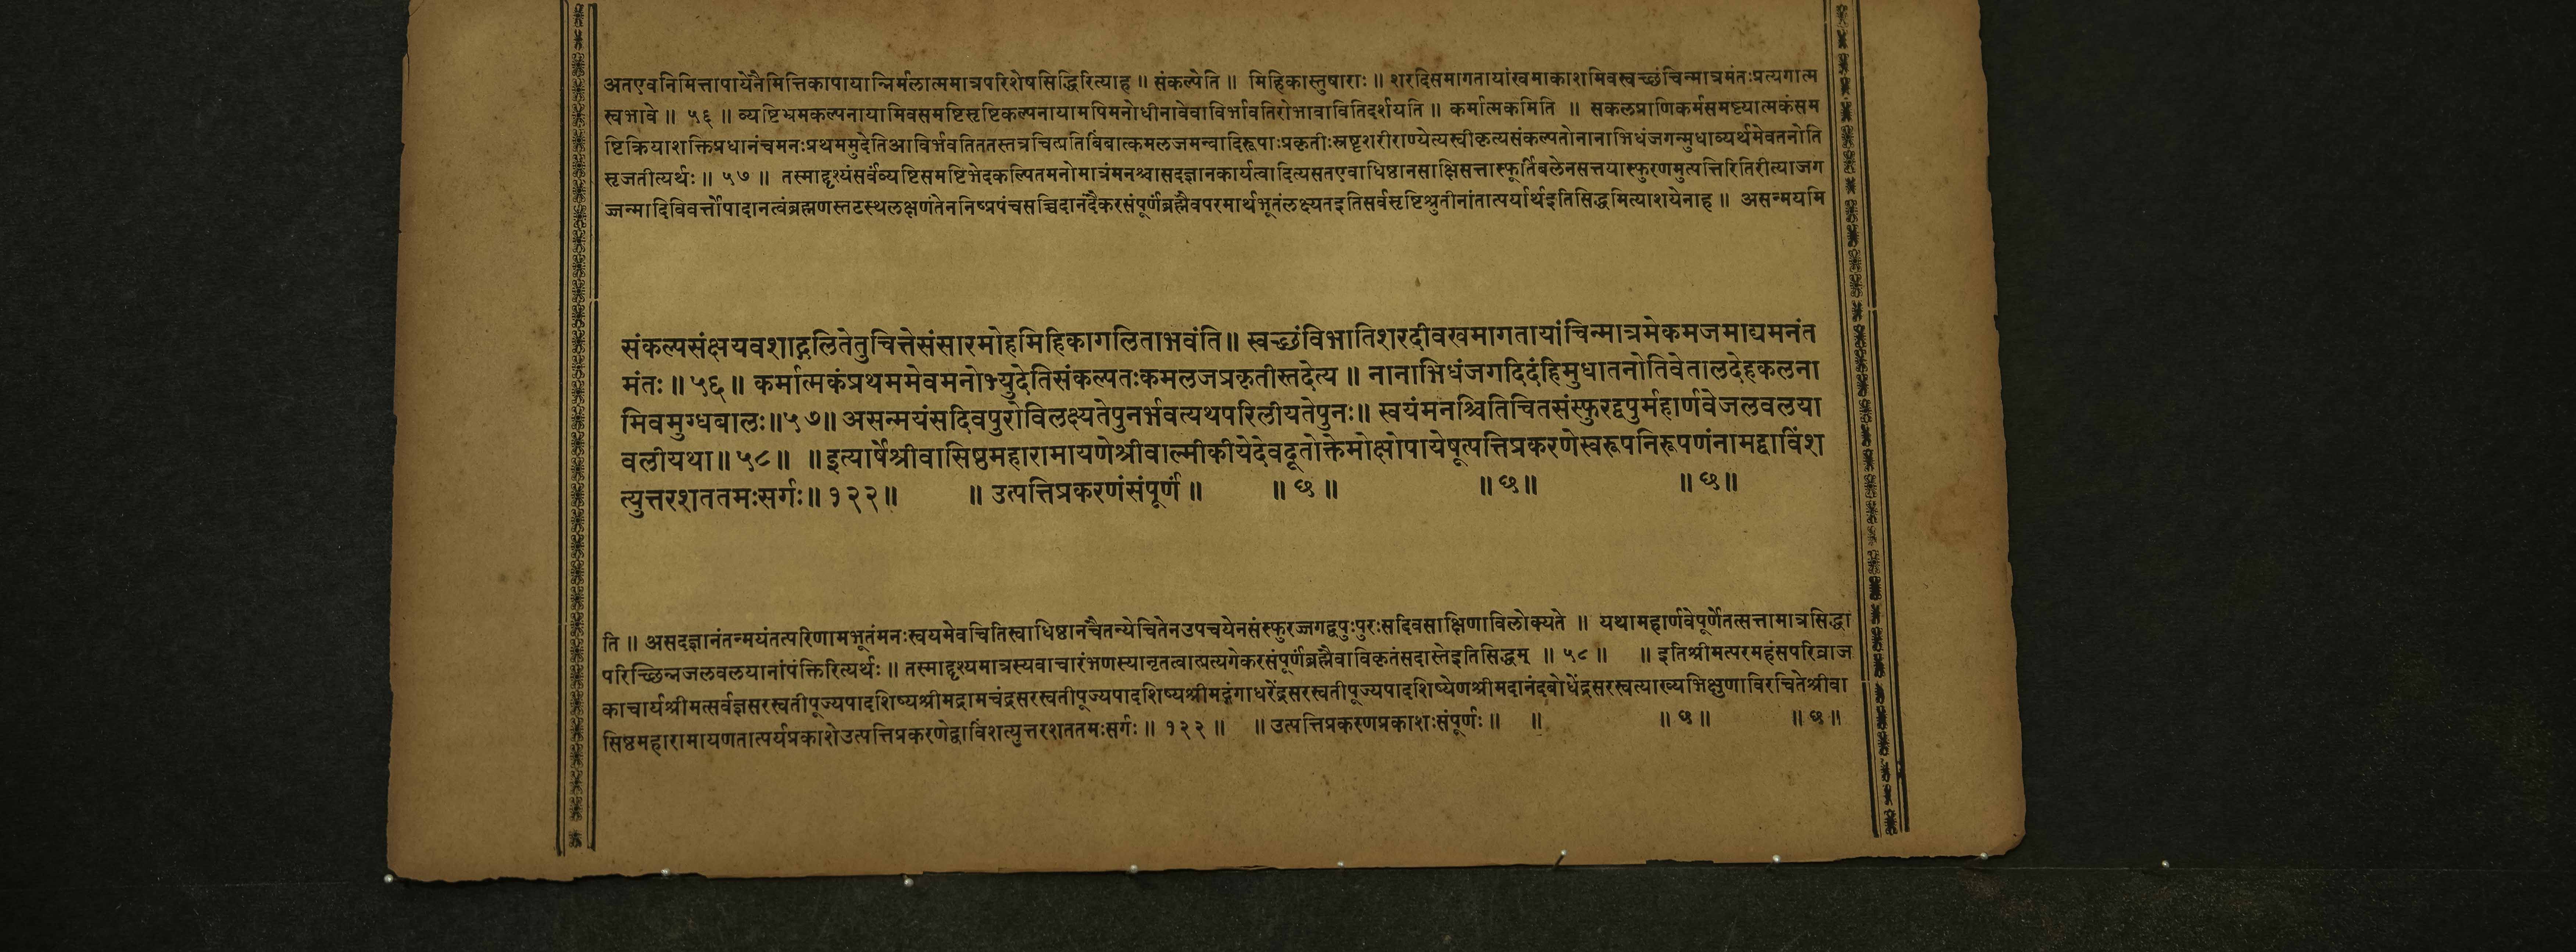 अतएवनिमित्तापायेनैमित्तिकापायान्निर्मलात्ममात्रपरिशेषसिद्धिरित्याह ॥ संकल्पेति ॥ मिहिकास्तुषाराः ॥ शरदिसमागतायांखमाकाशमिवस्वच्छंचिन्मात्रमंतःप्रत्यगात्म
स्वभावे ॥ ५६ ॥ व्यष्टिभ्रमकल्पनायामिवसमष्टिसृष्टिकल्पनायामपिमनोधीनावेवाविर्भावतिरोभावावितिदर्शयति ॥ कर्मात्मकमिति ॥ सकलप्राणिकर्मसमष्ट्यात्मकंसम
ष्टिक्रियाशक्तिप्रधानंचमनःप्रथममुदेतिआविर्भवतिततस्तत्रचित्प्रतिबिंबात्कमलजमन्वादिरूपाःप्रकृतीःस्रष्टृशरीराण्येत्यस्वीकृत्यसंकल्पतोनानाभिधंजगन्मुधाव्यर्थमेवतनोति
सृजतीत्यर्थः ॥ ५७ ॥ तस्माद्दृश्यंसर्वंव्यष्टिसमष्टिभेदकल्पितमनोमात्रंमनश्चासदज्ञानकार्यत्वादित्यसतएवाधिष्ठानसाक्षिसत्तास्फूर्तिबलेनसत्तयास्फुरणमुत्पत्तिरितिरीत्याजग
ज्जन्मादिविवर्त्तोपादानत्वंब्रह्मणस्तटस्थलक्षणंतेननिष्प्रपंचसच्चिदानंदैकरसंपूर्णंब्रह्मैवपरमार्थभूतंलक्ष्यतइतिसर्वसृष्टिश्रुतीनांतात्पर्यार्थइतिसिद्धमित्याशयेनाह ॥ असन्मयमि
संकल्पसंक्षयवशाद्गलितेतुचित्तेसंसारमोहमिहिकागलिताभवंति॥ स्वच्छंविभातिशरदीवखमागतायांचिन्मात्रमेकमजमाद्यमनंत
मंतः ॥ ५६ ॥ कर्मात्मकंप्रथममेवमनोभ्युदेतिसंकल्पतःकमलजप्रकृतीस्तदेत्य ॥ नानाभिधंजगदिदंहिमुधातनोतिवेतालदेहकलना
मिवमुग्धबालः॥५७॥ असन्मयंसदिवपुरोविलक्ष्यतेपुनर्भवत्यथपरिलीयतेपुनः॥ स्वयंमनश्चितिचितसंस्फुरद्वपुर्महार्णवेजलवलया
वलीयथा॥ ५८ ॥ ॥ इत्यार्षेश्रीवासिष्ठमहारामायणेश्रीवाल्मीकीयेदेवदूतोक्तेमोक्षोपायेषूत्पत्तिप्रकरणेस्वरूपनिरूपणंनामद्वाविंश
त्युत्तरशततमःसर्गः॥ १२२॥ ॥ उत्पत्तिप्रकरणंसंपूर्णं ॥ ॥ छ ॥ ॥ छ॥ ॥ छ॥
ति ॥ असदज्ञानंतन्मयंतत्परिणामभूतंमनःस्वयमेवचितिस्वाधिष्ठानचैतन्येचितेनउपचयेनसंस्फुरज्जगद्वपुःपुरःसदिवसाक्षिणाविलोक्यते ॥ यथामहार्णवेपूर्णेतत्सत्तामात्रसिद्धा
परिच्छिन्नजलवलयानांपंक्तिरित्यर्थः ॥ तस्माद्दृश्यमात्रस्यवाचारंभणस्यानृतत्वात्प्रत्यगेकरसंपूर्णंब्रह्मैवाविकृतंसदास्तेइतिसिद्धम् ॥ ५८ ॥ ॥ इतिश्रीमत्परमहंसपरिव्राज
काचार्यश्रीमत्सर्वज्ञसरस्वतीपूज्यपादशिष्यश्रीमद्रामचंद्रसरस्वतीपूज्यपादशिष्यश्रीमद्गंगाधरेंद्रसरस्वतीपूज्यपादशिष्येणश्रीमदानंदबोधेंद्रसरस्वत्याख्यभिक्षुणाविरचितेश्रीवा
सिष्ठमहारामायणतात्पर्यप्रकाशेउत्पत्तिप्रकरणेद्वाविंशत्युत्तरशततमःसर्गः ॥ १२२ ॥ ॥ उत्पत्तिप्रकरणप्रकाशःसंपूर्णः ॥ ॥ ॥ छ ॥ ॥ छ ॥